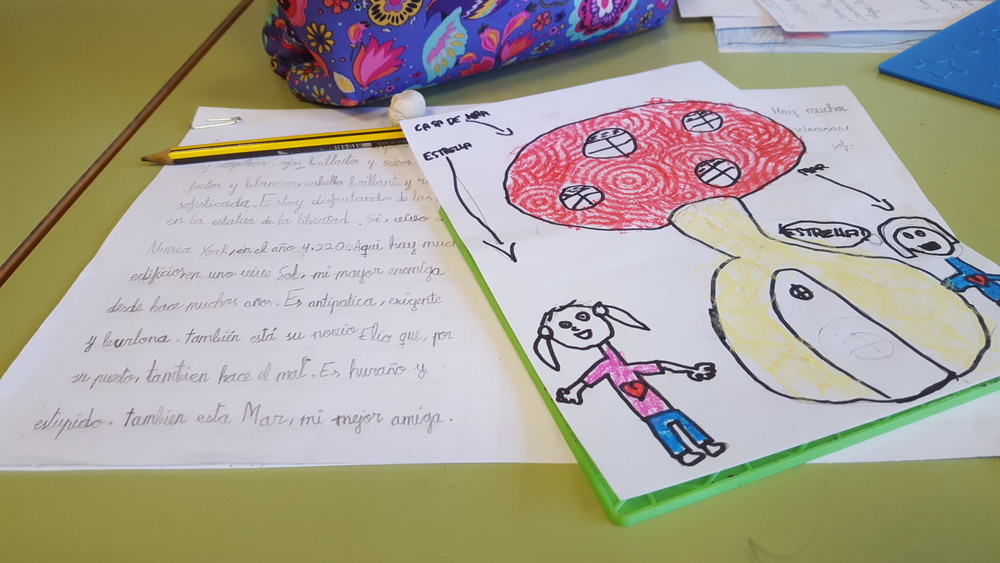 ojos brillantes y
y blancos, cabello brillante y
sofisticada. Estoy disfrutando de las
en la estatua de la libertad. Si, vivo
Nueva York, en el año y.220. Aquí hay much
edificios, en uno vive Sol, mi mayor enemiga
desde hace muchos años. Es antipatica, exigente
y burlona. también está su novio Elio que, por
su puesto, tambien hace el mal. Es huraño y
estupido. tambien esta Mar, mi mejor amiga.
CASA DE MAR
ESTRELLA
MAR
¡ESTRELLA!
Hay muchos